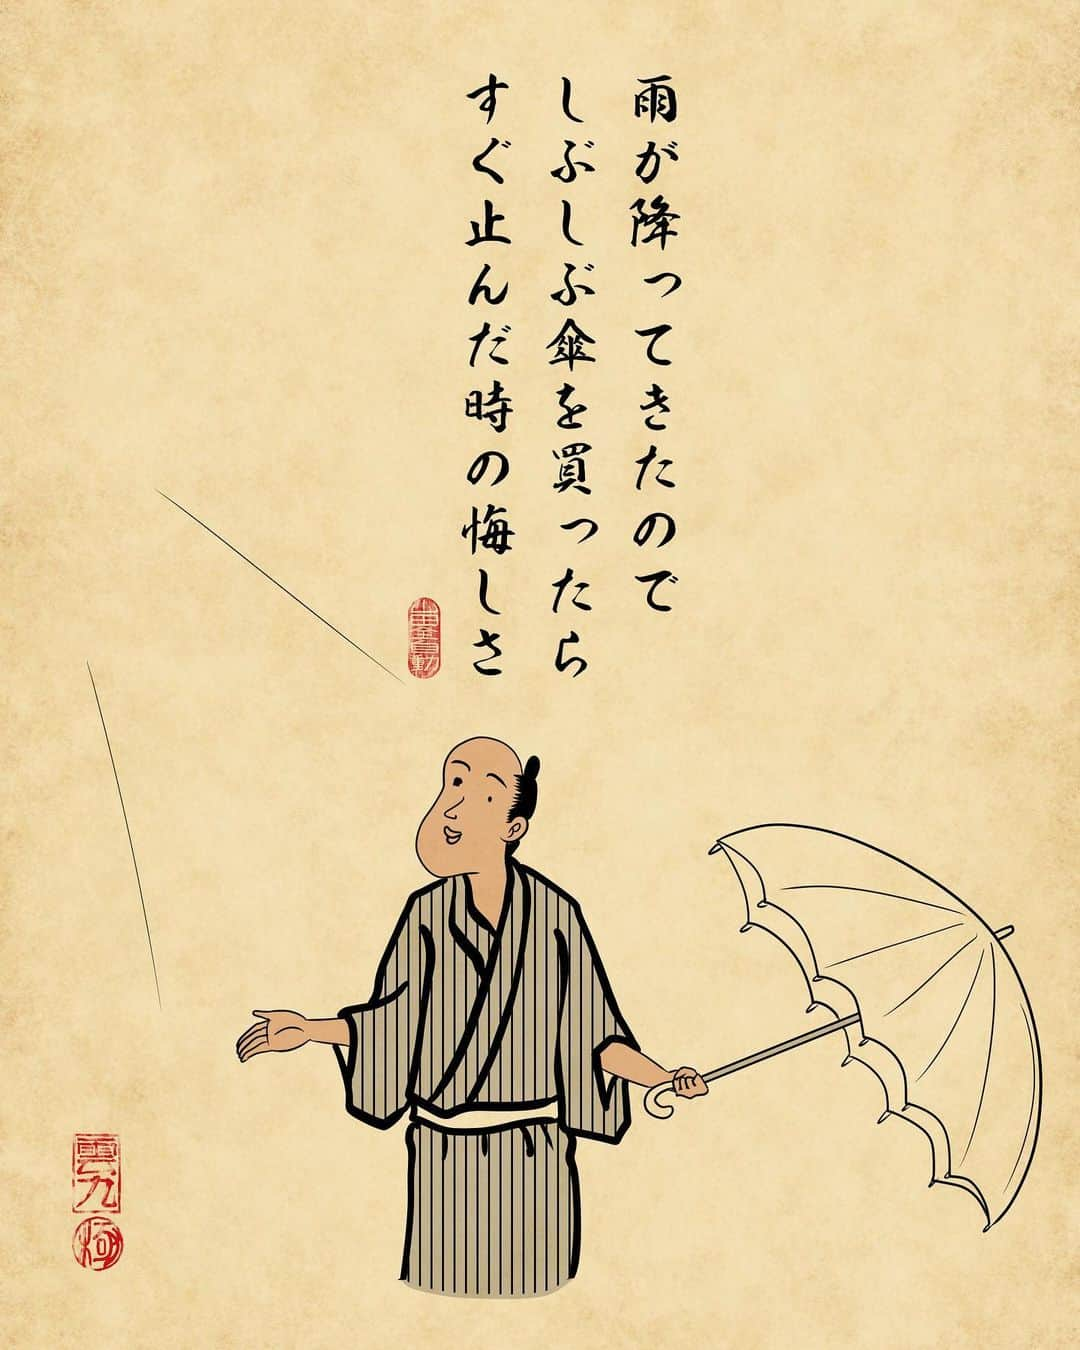 雨が降ってきたので
しぶしぶ傘を買ったら
すぐ止んだ時の悔しさ